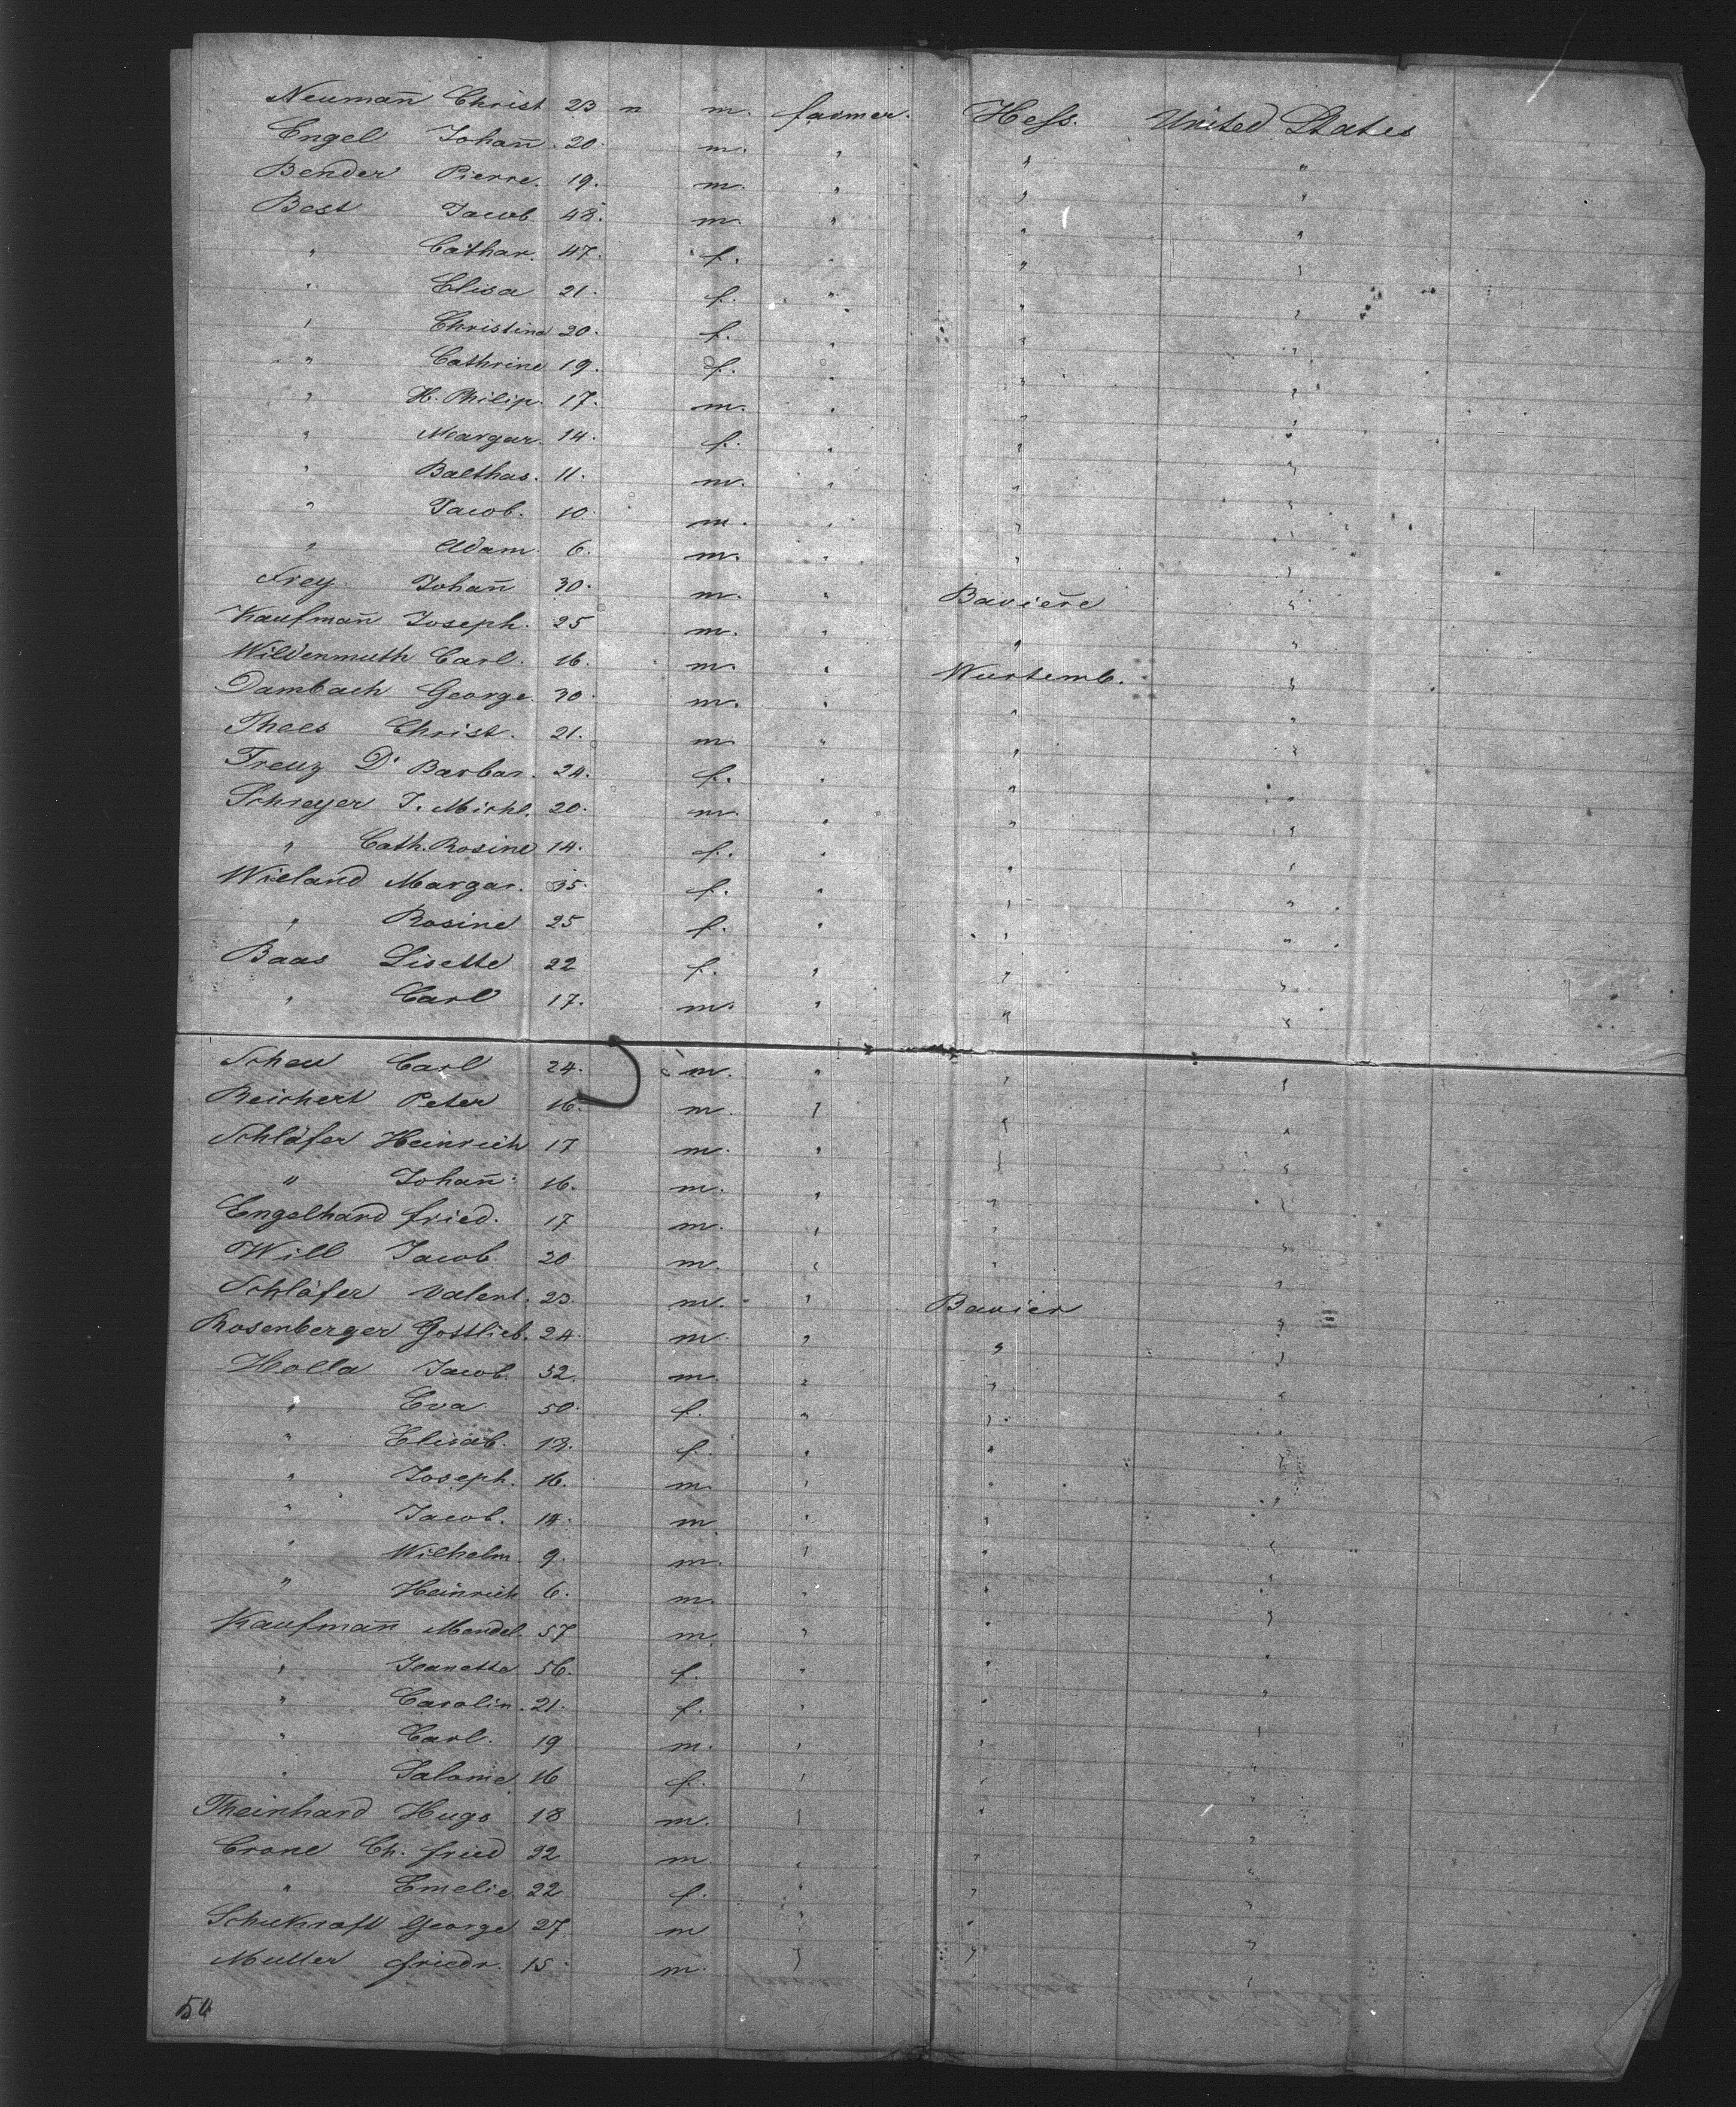 Neuman̄ Christ 23 " m. farmer. Hess. United States
Engel Johan̄. 20. m. " " "
Bender Pierre. 19. m. " " "
Best Jacob 48. m. " " "
" Cathar. 47. f. " " "
" Elisa 21. f. " " "
" Christina 20. f. " " "
" Cathrine 19. f. " " "
" H. Philip. 17. m. " " "
" Margar. 14. f. " " "
" Balthas. 11. m. " " "
" Jacob. 10. m. " " "
" Adam. 6. m. " " "
Frey Johan̄ 30. m. " Baviere "
Kaufman̄ Joseph. 25 m. " " "
Wildenmuth Carl. 16. m. " Wurtemb. "
Dambach George. 30. m. " " "
Thees Christ. 21. m. " " "
Freuz D' Barbar. 24. f. " " "
Schreyer J. Michl. 20. m. " " "
" Cath. Rosine 14. f. " " "
Wieland Margar. 35. f. " " "
" Rosine 25 f. " " "
Baas Lisette 22 f. " " "
" Carl 17. m. " " "
Scheu Carl 24. m. " " "
Reichert Peter 16. m " " "
Schläfer Heinrich 17 m. " " "
" Johan̄. 16. m. " " "
Engelhard fried. 17 m. " " "
Will Jacob 20 m. " " "
Schläfer Valent. 23. m. " Bavier "
Rosenberger Gottlieb. 24. m. " " "
Holla Jacob. 52. m. " " "
" Eva 50. f. " " "
" Elisab. 18. f. " " "
" Joseph. 16. m. " " "
" Jacob. 14. m " " "
" Wilhelm. 9. m. " " "
" Heinrich 6. m. " " "
Kaufman̄ Mendel. 57 m. " " "
" Jeanette 56. f. " " "
" Carolin. 21. f. " " "
" Carl. 19 m. " " "
" Salome 16 f. " " "
Theinhard Hugo 18 m. " " "
Crone Ch. fried 32 m " " "
" Emelie 22 f. " " "
Schukraft George 27 m " " "
Muller friedr. 15. m. " " "
50